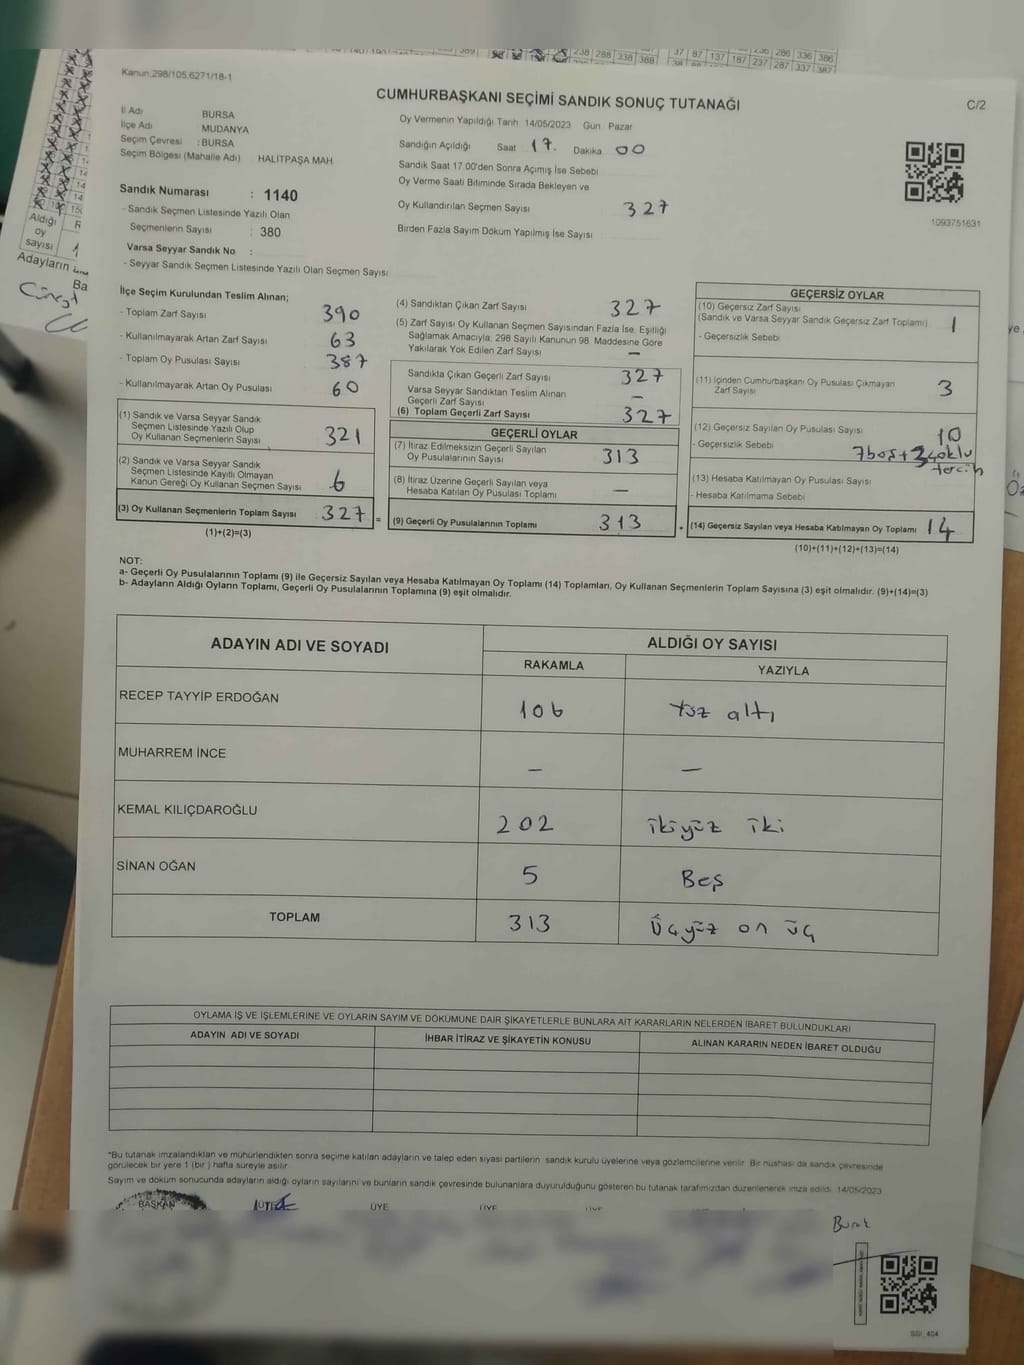 Kanun.298/105,6271/18-1
CUMHURBAŞKANI SEÇİMİ SANDIK SONUÇ TUTANAĞI
C/2
İl Adı BURSA
İlçe Adı MUDANYA
Seçim Çevresi : BURSA
Seçim Bölgesi (Mahalle Adı) HALITPAŞA MAH.
Oy Vermenin Yapıldığı Tarih 14/05/2023 Gün Pazar
Sandığın Açıldığı Saat 17. Dakika 00
Sandık Saat 17.00'den Sonra Açımış İse Sebebi
Oy Verme Saati Bitiminde Sırada Bekleyen ve
Oy Kullandırılan Seçmen Sayısı 327
Birden Fazla Sayım Döküm Yapılmış İse Sayısı
1093751631
Sandık Numarası : 1140
- Sandık Seçmen Listesinde Yazılı Olan
Seçmenlerin Sayısı : 380
Varsa Seyyar Sandık No :
- Seyyar Sandık Seçmen Listesinde Yazılı Olan Seçmen Sayısı
İlçe Seçim Kurulundan Teslim Alınan;
- Toplam Zarf Sayısı 390
- Kullanılmayarak Artan Zarf Sayısı 63
- Toplam Oy Pusulası Sayısı 387
- Kullanılmayarak Artan Oy Pusulası 60
(1) Sandık ve Varsa Seyyar Sandık
Seçmen Listesinde Yazılı Olup
Oy Kullanan Seçmenlerin Sayısı 321
(2) Sandık ve Varsa Seyyar Sandık
Seçmen Listesinde Kayıtlı Olmayan
Kanun Gereği Oy Kullanan Seçmen Sayısı 6
(3) Oy Kullanan Seçmenlerin Toplam Sayısı 327 =
(1)+(2)=(3)
(4) Sandıktan Çıkan Zarf Sayısı 327
(5) Zarf Sayısı Oy Kullanan Seçmen Sayısından Fazla İse, Eşitliği
Sağlamak Amacıyla, 298 Sayılı Kanunun 98. Maddesine Göre
Yakılarak Yok Edilen Zarf Sayısı —
Sandıkta Çıkan Geçerli Zarf Sayısı 327
Varsa Seyyar Sandıktan Teslim Alınan
Geçerli Zarf Sayısı —
(6) Toplam Geçerli Zarf Sayısı 327
GEÇERLİ OYLAR
(7) İtiraz Edilmeksizin Geçerli Sayılan
Oy Pusulalarının Sayısı 313
(8) İtiraz Üzerine Geçerli Sayılan veya
Hesaba Katılan Oy Pusulası Toplamı —
(9) Geçerli Oy Pusulalarının Toplamı 313 +
GEÇERSİZ OYLAR
(10) Geçersiz Zarf Sayısı
(Sandık ve Varsa Seyyar Sandık Geçersiz Zarf Toplamı) 1
- Geçersizlik Sebebi
(11) İçinden Cumhurbaşkanı Oy Pusulası Çıkmayan
Zarf Sayısı 3
(12) Geçersiz Sayılan Oy Pusulası Sayısı 10
- Geçersizlik Sebebi 7 boş + 3 çoklu
tercih
(13) Hesaba Katılmayan Oy Pusulası Sayısı
- Hesaba Katılmama Sebebi
(14) Geçersiz Sayılan veya Hesaba Katılmayan Oy Toplamı 14
(10)+(11)+(12)+(13)=(14)
NOT:
a- Geçerli Oy Pusulalarının Toplamı (9) ile Geçersiz Sayılan veya Hesaba Katılmayan Oy Toplamı (14) Toplamları, Oy Kullanan Seçmenlerin Toplam Sayısına (3) eşit olmalıdır. (9)+(14)=(3)
b- Adayların Aldığı Oyların Toplamı, Geçerli Oy Pusulalarının Toplamına (9) eşit olmalıdır.
ADAYIN ADI VE SOYADI
ALDIĞI OY SAYISI
RAKAMLA YAZIYLA
RECEP TAYYİP ERDOĞAN 106 Yüz altı
MUHARREM İNCE — —
KEMAL KILIÇDAROĞLU 202 ikiyüz iki
SİNAN OĞAN 5 Beş
TOPLAM 313 Üçyüz on üç
OYLAMA İŞ VE İŞLEMLERİNE VE OYLARIN SAYIM VE DÖKÜMÜNE DAİR ŞİKAYETLERLE BUNLARA AİT KARARLARIN NELERDEN İBARET BULUNDUKLARI
ADAYIN ADI VE SOYADI İHBAR İTİRAZ VE ŞİKAYETİN KONUSU ALINAN KARARIN NEDEN İBARET OLDUĞU
*Bu tutanak imzalandıktan ve mühürlendikten sonra seçime katılan adayların ve talep eden siyasi partilerin sandık kurulu üyelerine veya gözlemcilerine verilir. Bir nüshası da sandık çevresinde
görülecek bir yere 1 (bir ) hafta süreyle asılır.
Sayım ve döküm sonucunda adayların aldığı oyların sayılarını ve bunların sandık çevresinde bulunanlara duyurulduğunu gösteren bu tutanak tarafımızdan düzenlenerek imza edildi. 14/05/2023
BAŞKAN ÜYE
Burak
Aldığı
oy
sayısı
Adayların